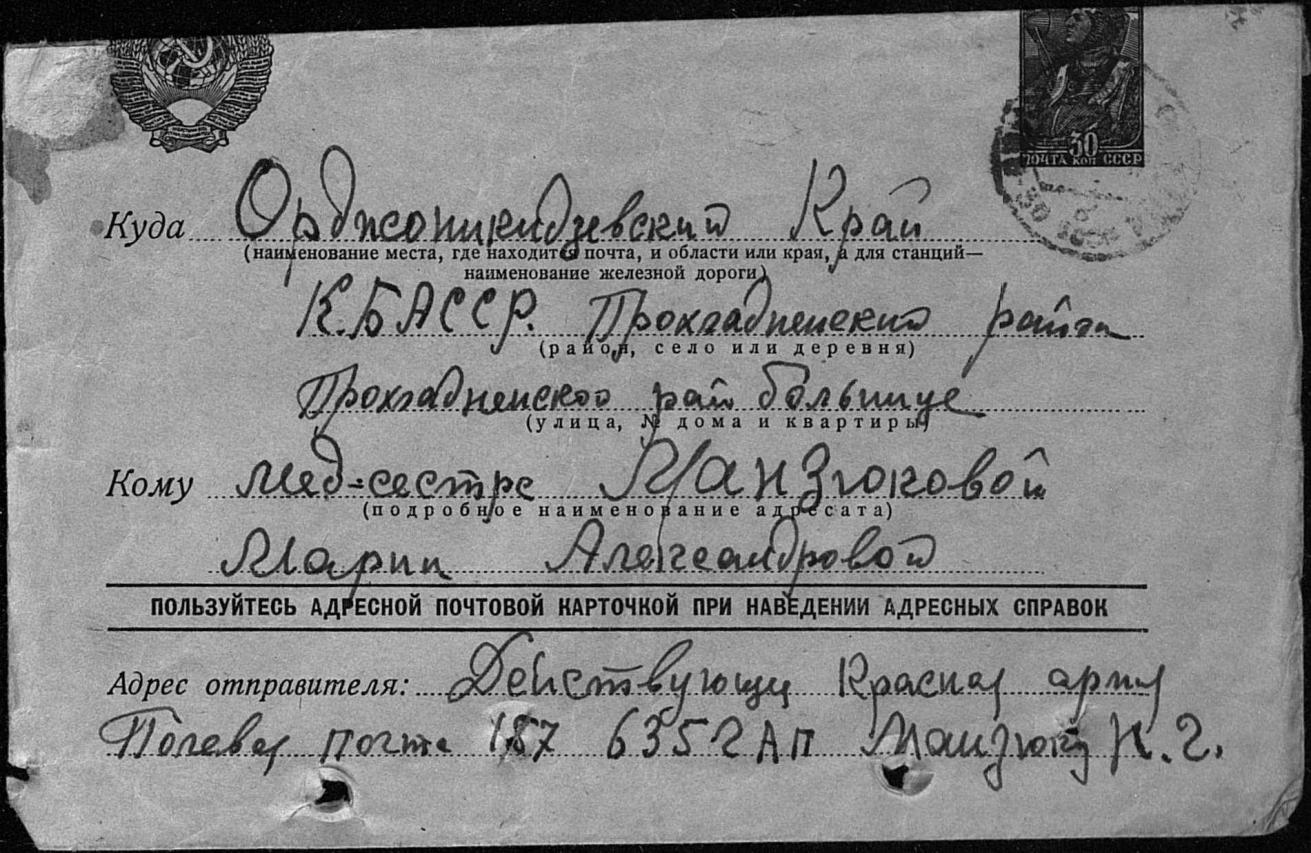 30
ПОЧТА КОП СССР
Куда Орджоникидзевский Край
(наименование места, где находится почта, и области или края, а для станций—
наименование железной дороги)
К.БАССР. Прохладненский района
(район, село или деревня)
Прохладненской рай больнице
(улица, № дома и квартиры)
Кому мед-сестре Манзюковой
(подробное наименование адресата)
Марии Александровой
ПОЛЬЗУЙТЕСЬ АДРЕСНОЙ ПОЧТОВОЙ КАРТОЧКОЙ ПРИ НАВЕДЕНИИ АДРЕСНЫХ СПРАВОК
Адрес отправителя: Действующ Красная
Полевая почта 187 635 ГАП Манзюк Н. Г.